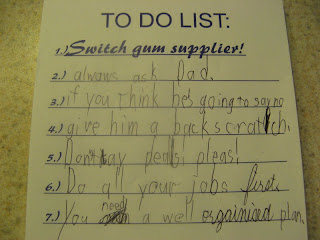 TO DO LIST:
1.) Switch gum supplier!
2.) always ask Dad.
3.) if you think he's going to say no
4.) give him a backscratch.
5.) Don't say peas! pleas!
6.) Do all your jobs first.
7.) You need a well orgainised plan.